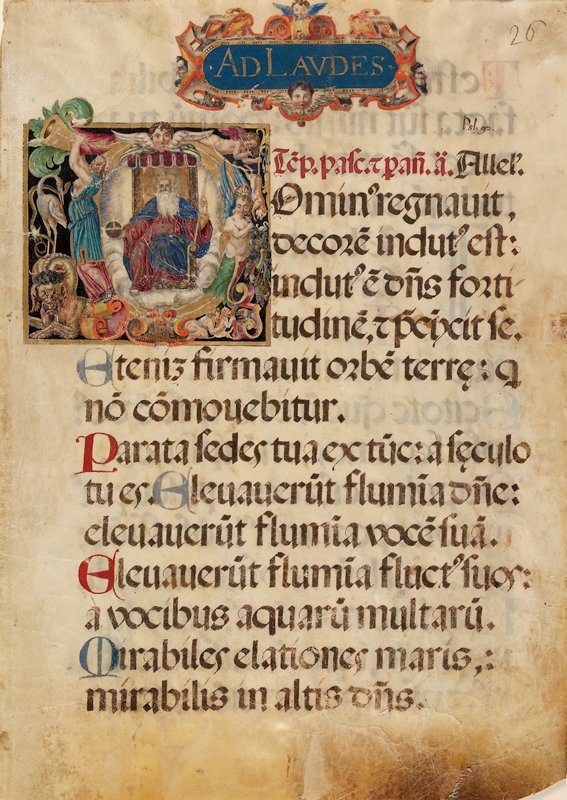 26
AD LAVDES
Psl. 92.
Tēp. pasc. ⁊ p añ. ā. Alleł.
Dominꝰ regnauit,
decorē indutꝰ est:
indutꝰ ē dn̄s forti
tudinē, ⁊ p̄cīxit se.
Eteniꝫ firmauit orbē terrę: q
nō cōmouebitur.
Parata sedes tua ex tūc: a sęculo
tu es. Eleuauerūt flumīa dn̄e:
eleuauerūt flumīa vocē suā.
Eleuauerūt flumīa fluctꝰ suos:
a vocibus aquarū multarū.
Mirabiles elationes maris,:
mirabilis in altis dn̄s.